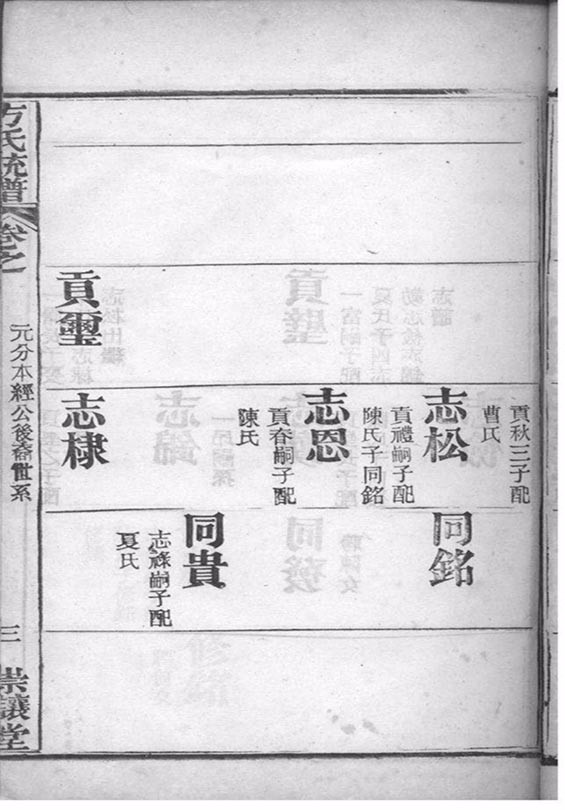 貢璽
貢秋三子配
曹氏
志松
貢禮嗣子配
陳氏子同銘
志恩
貢春嗣子配
陳氏
志棣
同銘
同貴
志祿嗣子配
夏氏
方氏統譜
卷之
元分本經公後裔世系
三
崇讓堂